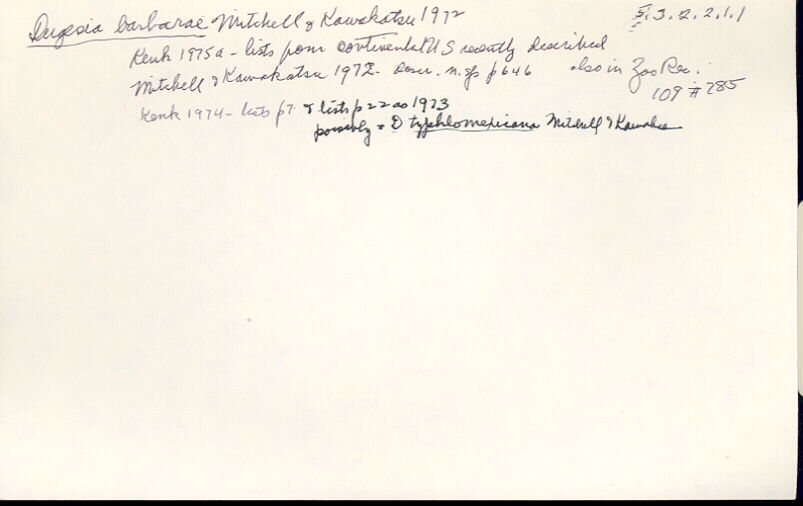 Dugesia barbarae Mitchell & Kawakatsu 1972 5.3.2.2.1.1
Kenk 1975a - lists from continental US recently described
Mitchell & Kawakatsu 1972. Descr. n. figs p 646 also in Zoo Rec.
109 # 785
Kenk 1974 - lists p7 & lists p22 as 1973
possibly = D typhlomexicana Mitchell & Kawakatsu